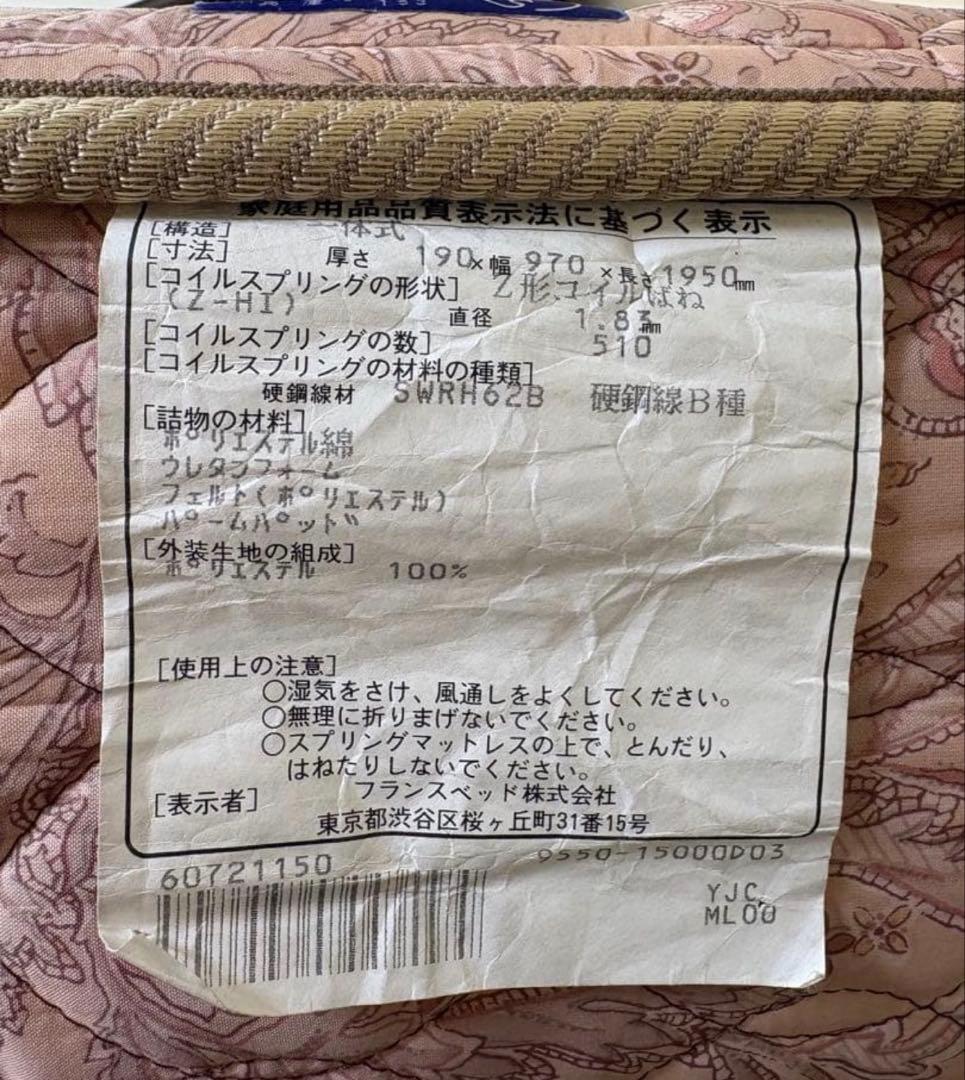 家庭用品品質表示法に基づく表示
[構造] 一体式
[寸法] 厚さ 190×幅 970 ×長さ1950mm
[コイルスプリングの形状] Z形コイルばね
(Z-HI) 直径 1.83mm
[コイルスプリングの数] 510
[コイルスプリングの材料の種類]
硬鋼線材 SWRH62B 硬鋼線B種
[詰物の材料]
ポリエステル綿
ウレタンフォーム
フェルト(ポリエステル)
パームパッド
[外装生地の組成]
ポリエステル 100%
[使用上の注意]
○湿気をさけ、風通しをよくしてください。
○無理に折りまげないでください。
○スプリングマットレスの上で、とんだり、
はねたりしないでください。
[表示者] フランスベッド株式会社
東京都渋谷区桜ヶ丘町31番15号
60721150 9550-15000D03
YJC
ML00